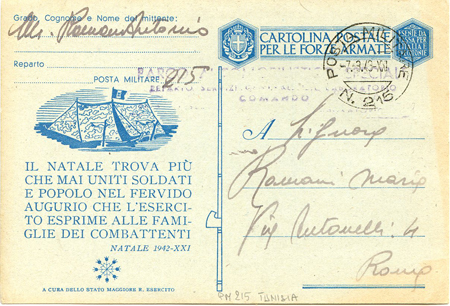 Grado, Cognome e Nome del mittente:
Romani Antonio
Reparto
POSTA MILITARE 215
CARTOLINA POSTALE
PER LE FORZE ARMATE
POSTA MILITARE
N. 215
COMANDO
IL NATALE TROVA PIÙ
CHE MAI UNITI SOLDATI
E POPOLO NEL FERVIDO
AUGURIO CHE L'ESERCI-
TO ESPRIME ALLE FAMI-
GLIE DEI COMBATTENTI
NATALE 1942-XXI
A CURA DELLO STATO MAGGIORE R. ESERCITO
A Signora
Romani Maria
Via Antonelli 4
Roma
PM 215 TUNISIA